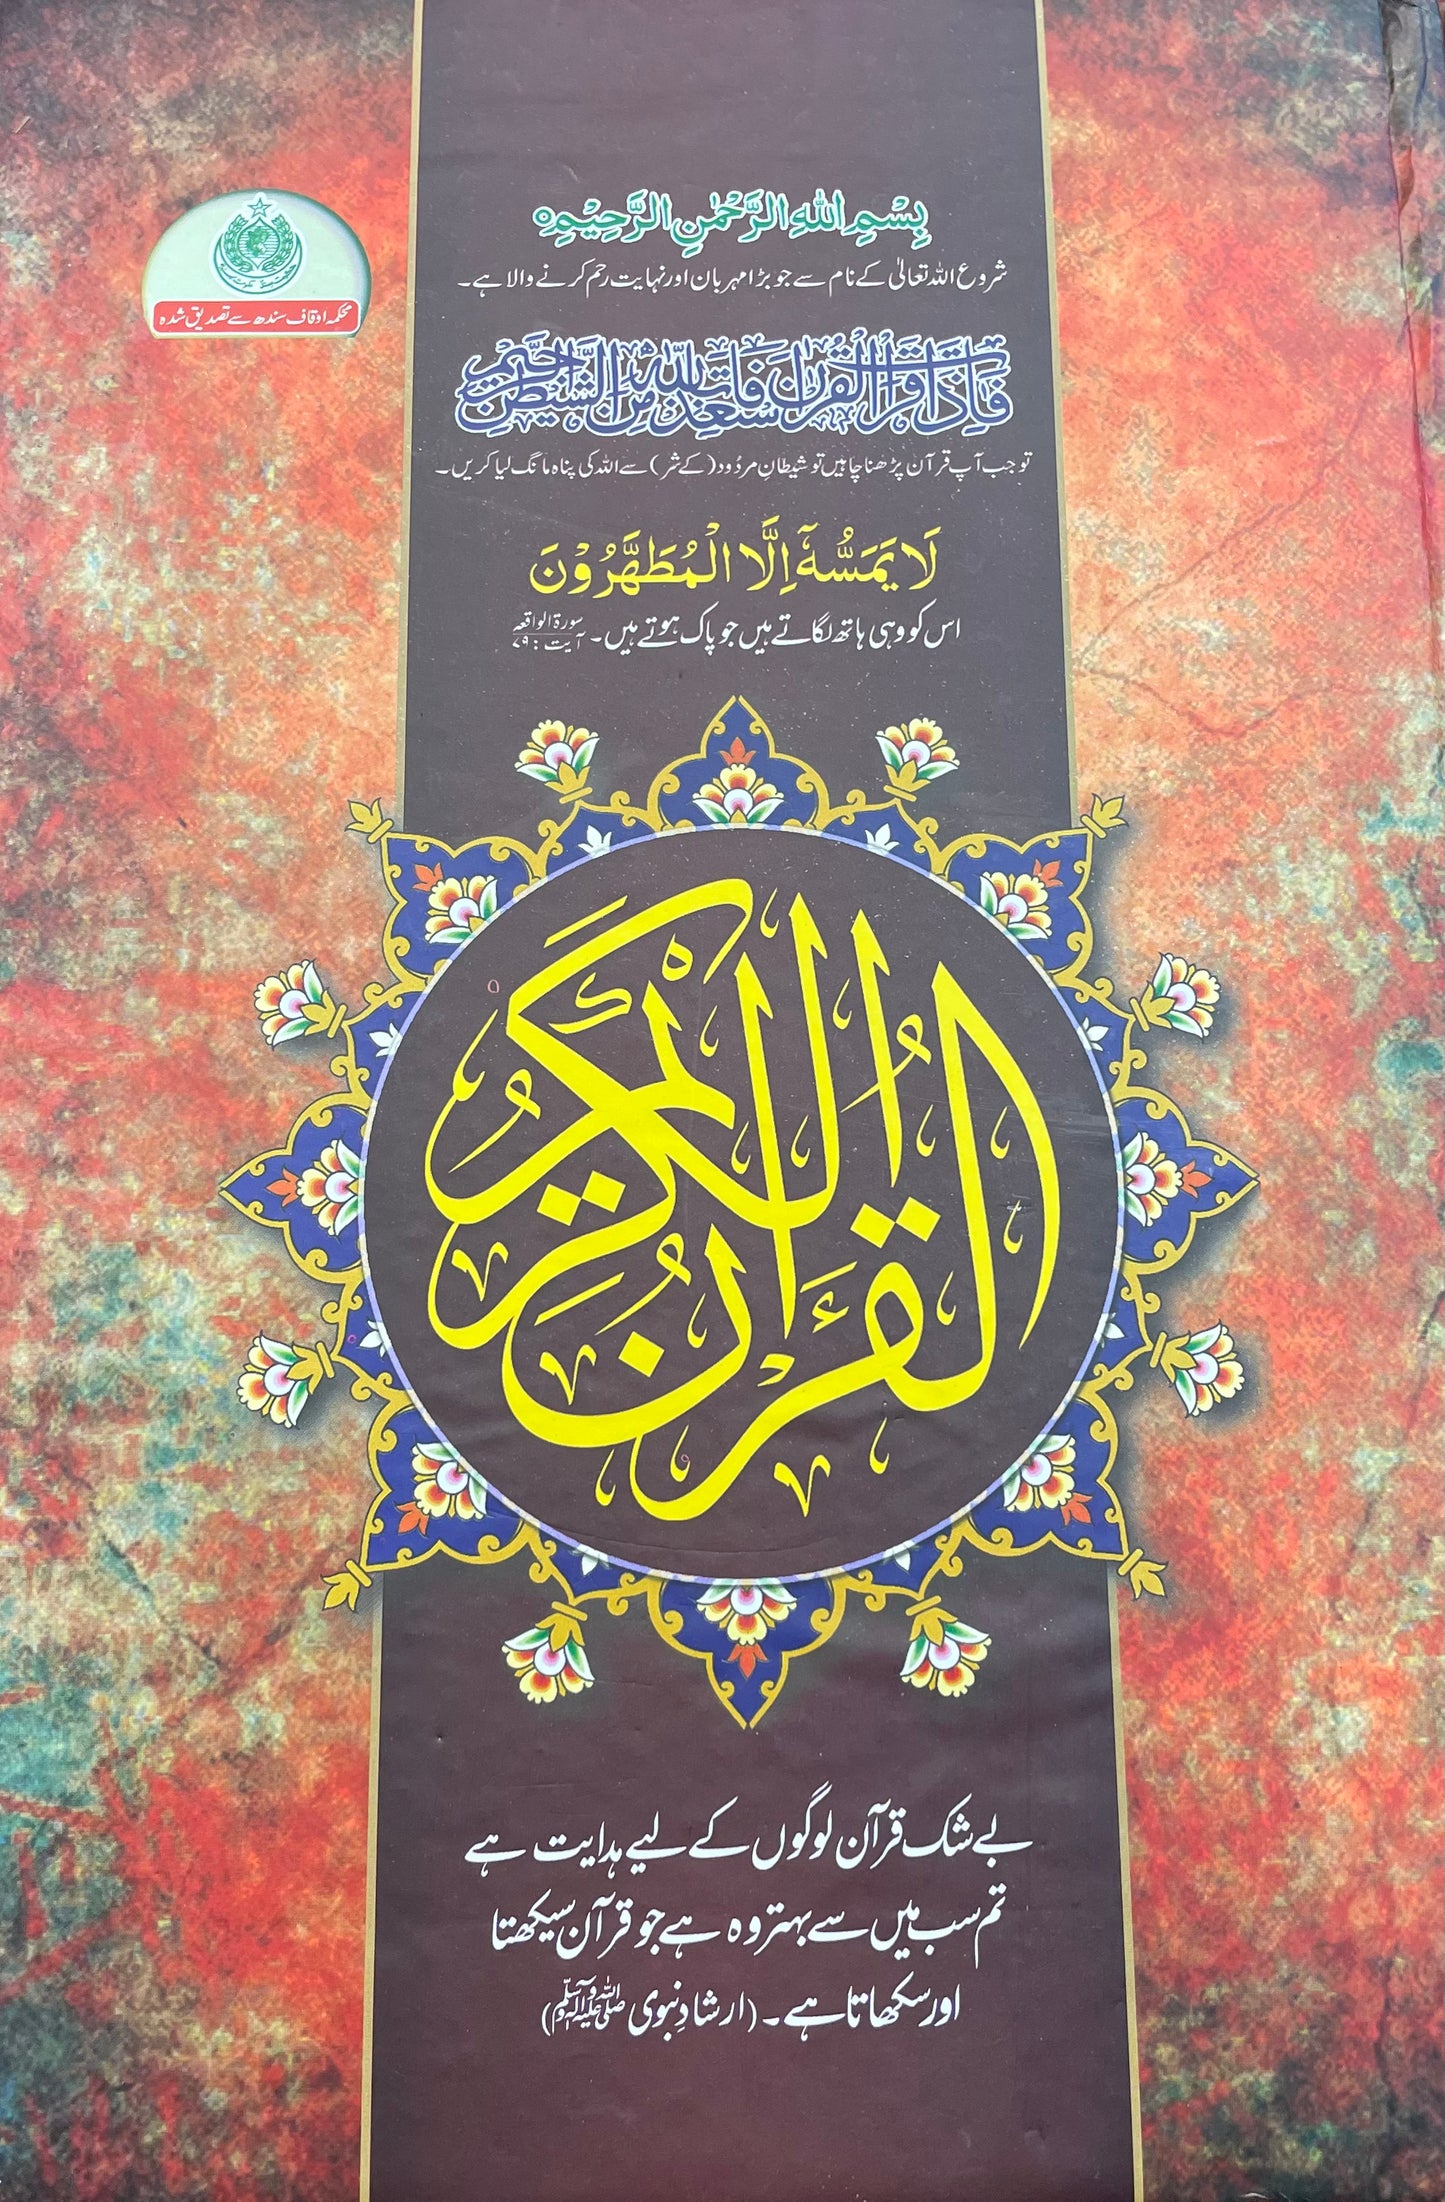 بِسْمِ اللهِ الرَّحْمٰنِ الرَّحِيْمِ
شروع اللہ تعالیٰ کے نام سے جو بڑا مہربان اور نہایت رحم کرنے والا ہے۔
محکمہ اوقاف سندھ سے تصدیق شدہ
فَاِذَا قَرَاْتَ الْقُرْاٰنَ فَاسْتَعِذْ بِاللّٰهِ مِنَ الشَّيْطٰنِ الرَّجِيْمِ
تو جب آپ قرآن پڑھنا چاہیں تو شیطانِ مردُود (کے شر) سے اللہ کی پناہ مانگ لیا کریں۔
لَا يَمَسُّهٗٓ اِلَّا الْمُطَهَّرُوْنَ
اس کو وہی ہاتھ لگاتے ہیں جو پاک ہوتے ہیں۔ سورۃ الواقعہ آیت : ۷۹
الْقُرْاٰنُ الْكَرِيْمُ
بے شک قرآن لوگوں کے لیے ہدایت ہے
تم سب میں سے بہتر وہ ہے جو قرآن سیکھتا
اور سکھاتا ہے۔ (ارشادِ نبوی صلی اللہ علیہ وآلہ وسلم)